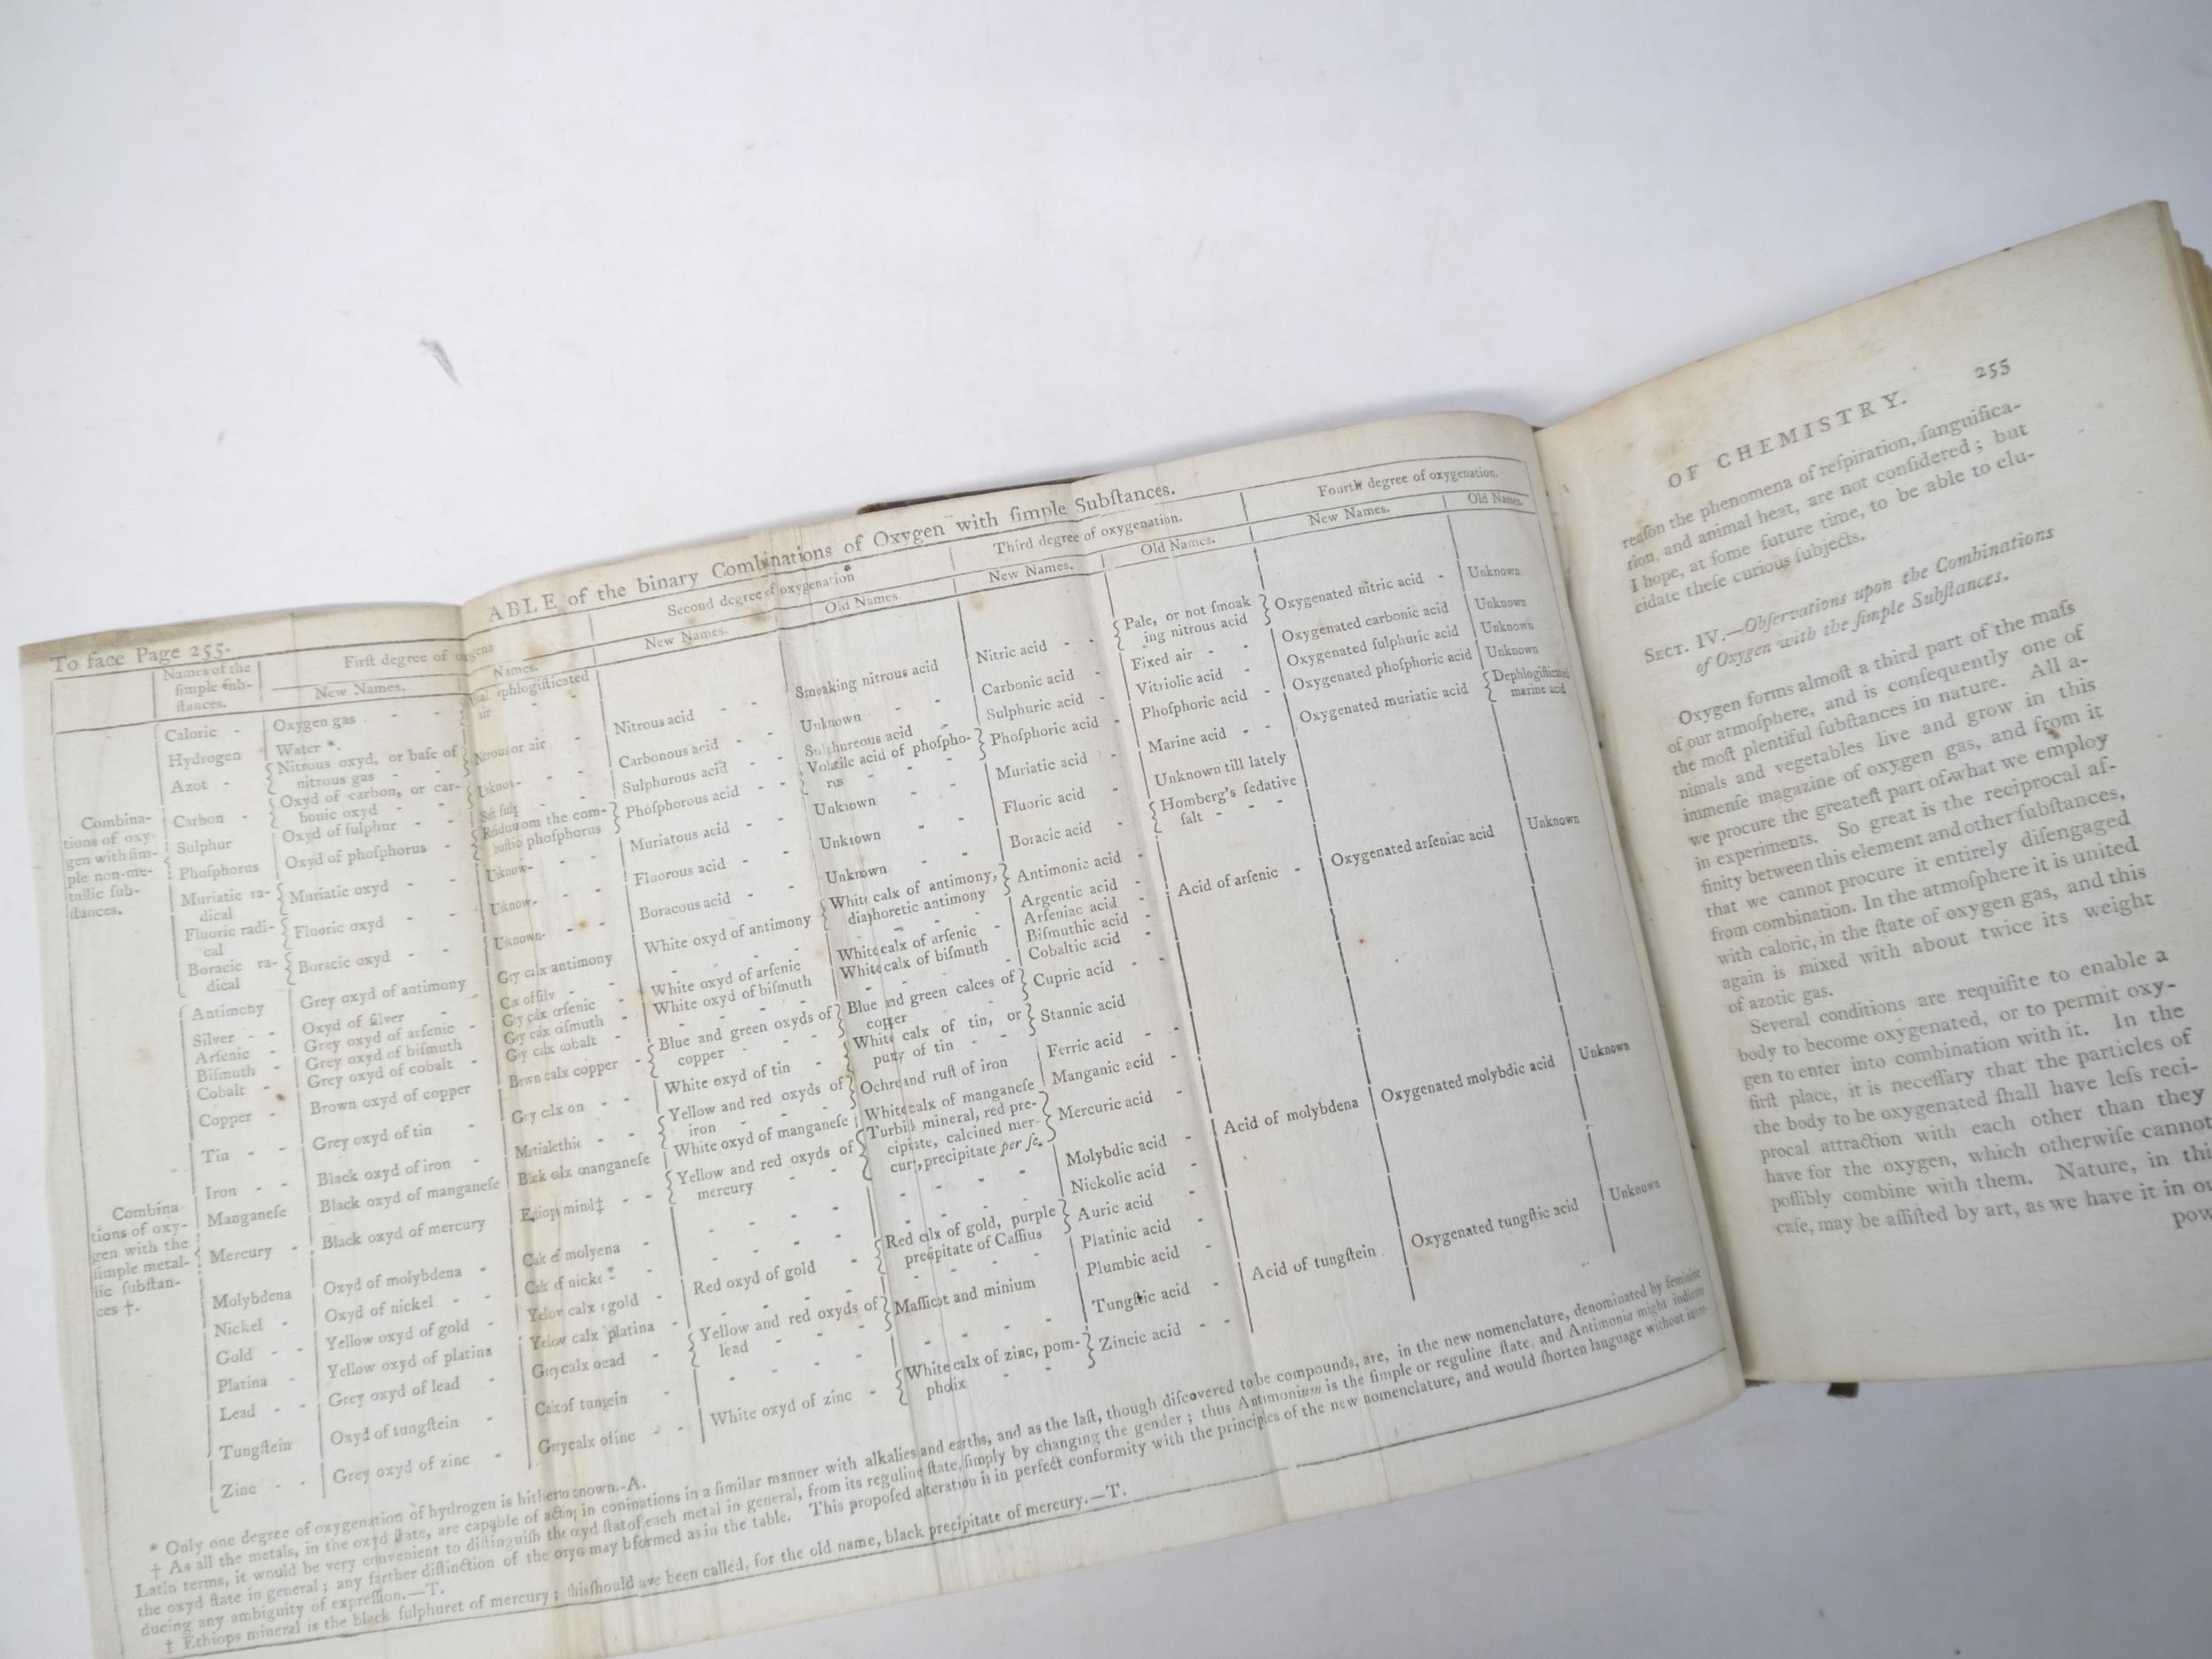 To face Page 255.
ABLE of the binary Combinations of Oxygen with ſimple Subſtances.
Names of the ſimple ſub-ſtances.
Firſt degree of
Second degree of oxygenation
Third degree of oxygenation.
Fourth degree of oxygenation.
New Names.
Names.
New Names.
Old Names
New Names.
Old Names.
New Names.
Old Names.
Combina-
tions of oxy-
gen with ſim-
ple non-me-
tallic ſub-
ſtances.
Caloric - Oxygen gas - - air
Hydrogen Water *.
Azot - Nitrous oxyd, or baſe of nitrous gas - air - Nitrous acid - - Smoaking nitrous acid Nitric acid - - Pale, or not ſmoak ing nitrous acid Oxygenated nitric acid - Unknown
Carbon - Oxyd of carbon, or car- bonic oxyd - - Carbonous acid - - Unknown - - Carbonic acid - Fixed air - - Oxygenated carbonic acid Unknown
Sulphur Oxyd of ſulphur - - Sulphurous acid - - Sulphureous acid Sulphuric acid - Vitriolic acid - Oxygenated ſulphuric acid Unknown
Phoſphorus Oxyd of phoſphorus - from the com- phoſphorus Phoſphorous acid - - Volatile acid of phoſpho- rus - - - Phoſphoric acid - Phoſphoric acid - Oxygenated phoſphoric acid Unknown
Muriatic ra- dical Muriatic oxyd - - Muriatous acid - - Unknown - - Muriatic acid - Marine acid - - Oxygenated muriatic acid Dephlogiſticated marine acid
Fluoric radi- cal Fluoric oxyd - - Fluorous acid - - Unknown - - Fluoric acid - Unknown till lately
Boracic ra- dical Boracic oxyd - - Boracous acid - - Unknown - - Boracic acid - Homberg's ſedative ſalt - - -
Combina
tions of oxy-
gen with the
ſimple metal-
lic ſubſtan-
ces †.
Antimony Grey oxyd of antimony - antimony White oxyd of antimony calx of antimony, diaphoretic antimony Antimonic acid -
Silver - - Oxyd of ſilver - Argentic acid -
Arſenic - Grey oxyd of arſenic - White oxyd of arſenic White calx of arſenic - Arſeniac acid - Acid of arſenic - Oxygenated arſeniac acid Unknown
Biſmuth - Grey oxyd of biſmuth White oxyd of biſmuth White calx of biſmuth Biſmuthic acid -
Cobalt - Grey oxyd of cobalt - Cobaltic acid -
Copper - Brown oxyd of copper calx copper - Blue and green oxyds of copper - - - Blue and green calces of copper Cupric acid - -
Tin - - Grey oxyd of tin - White oxyd of tin - White calx of tin, or putty of tin - - Stannic acid
Iron - - Black oxyd of iron - Yellow and red oxyds of iron Ochre and ruſt of iron Ferric acid -
Manganeſe Black oxyd of manganeſe White oxyd of manganeſe White calx of manganeſe Manganic acid -
Mercury - Black oxyd of mercury Yellow and red oxyds of mercury - - mineral, red pre- cipitate, calcined mer- precipitate per ſe. Mercuric acid -
Molybdena Oxyd of molybdena - Molybdic acid - Acid of molybdena Oxygenated molybdic acid Unknown
Nickel - Oxyd of nickel - - Nickolic acid -
Gold - - Yellow oxyd of gold - Red oxyd of gold - Red calx of gold, purple precipitate of Caſſius Auric acid -
Platina - Yellow oxyd of platina calx platina - Platinic acid -
Lead - - Grey oxyd of lead - Yellow and red oxyds of lead - - - Maſſicot and minium Plumbic acid -
Tungſtein Oxyd of tungſtein - Tungſtic acid - Acid of tungſtein Oxygenated tungſtic acid Unknown
Zinc - - Grey oxyd of zinc - White oxyd of zinc - White calx of zinc, pom- pholix - - Zincic acid - -
* Only one degree of oxygenation of hydrogen is hitherto known.-A.
† As all the metals, in the oxyd ſtate, are capable of acting in in a ſimilar manner with alkalies and earths, and as the laſt, though diſcovered to be compounds, are, in the new nomenclature, denominated by feminine
Latin terms, it would be very convenient to diſtinguiſh the oxyd of each metal in general, from its reguline ſtate, ſimply by changing the gender; thus Antimonium is the ſimple or reguline ſtate, and Antimonia might indicate
the oxyd ſtate in general; any farther diſtinction of the may as in the table. This propoſed alteration is in perfect conformity with the principles of the new nomenclature, and would ſhorten language without intro-
ducing any ambiguity of expreſſion.—T.
‡ Ethiops mineral is the black ſulphuret of mercury; this ſhould have been called, for the old name, black precipitate of mercury.—T.
OF CHEMISTRY. 255
reaſon the phenomena of reſpiration, ſanguifica-
tion, and animal heat, are not conſidered; but
I hope, at ſome future time, to be able to elu-
cidate theſe curious ſubjects.
SECT. IV.—Obſervations upon the Combinations
of Oxygen with the ſimple Subſtances.
Oxygen forms almoſt a third part of the maſs
of our atmoſphere, and is conſequently one of
the moſt plentiful ſubſtances in nature. All a-
nimals and vegetables live and grow in this
immenſe magazine of oxygen gas, and from it
we procure the greateſt part of what we employ
in experiments. So great is the reciprocal af-
finity between this element and other ſubſtances,
that we cannot procure it entirely diſengaged
from combination. In the atmoſphere it is united
with caloric, in the ſtate of oxygen gas, and this
again is mixed with about twice its weight
of azotic gas.
Several conditions are requiſite to enable a
body to become oxygenated, or to permit oxy-
gen to enter into combination with it. In the
firſt place, it is neceſſary that the particles of
the body to be oxygenated ſhall have leſs reci-
procal attraction with each other than they
have for the oxygen, which otherwiſe cannot
poſſibly combine with them. Nature, in thi
caſe, may be aſſiſted by art, as we have it in ou
pow